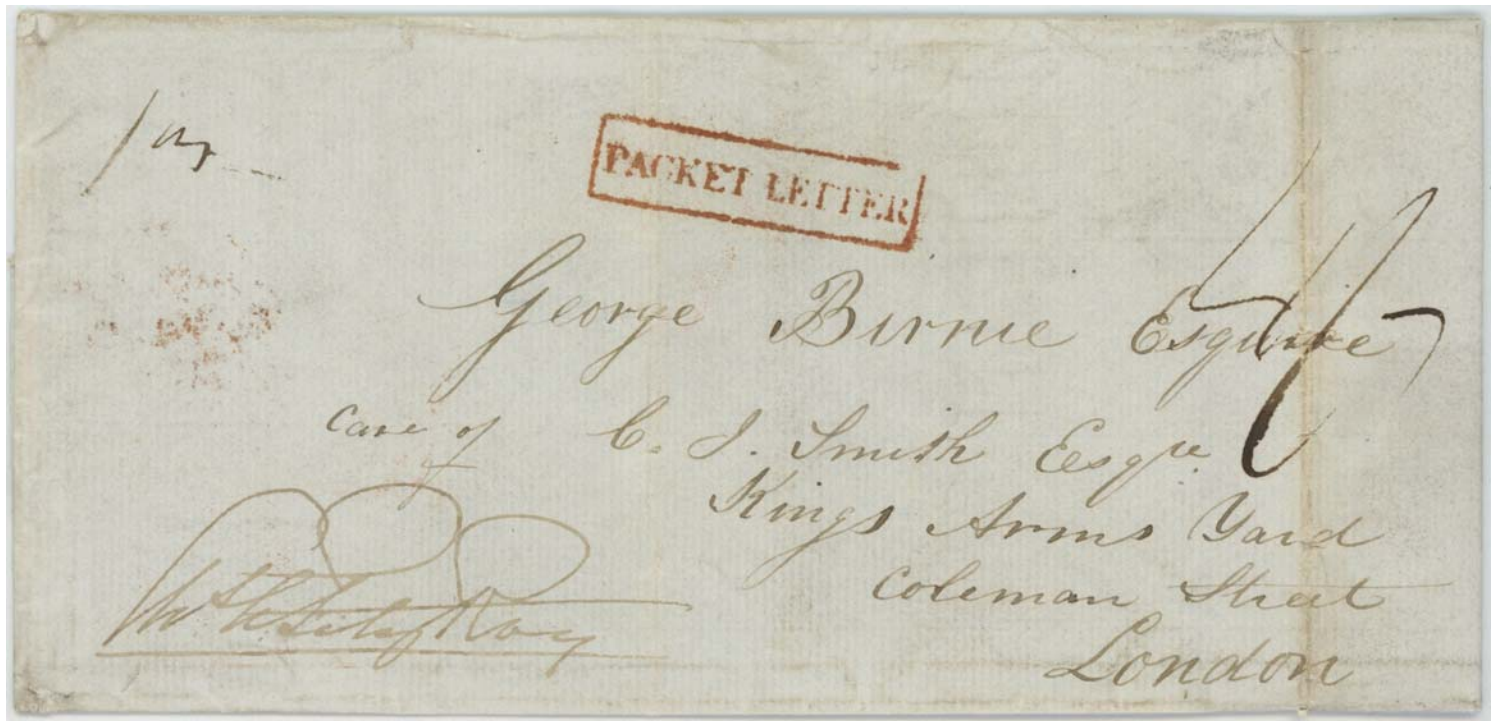 1 oz
PACKET LETTER
George Birnie Esquire
Care of C. J. Smith Esqre
Kings Arms Yard
Coleman Street
London